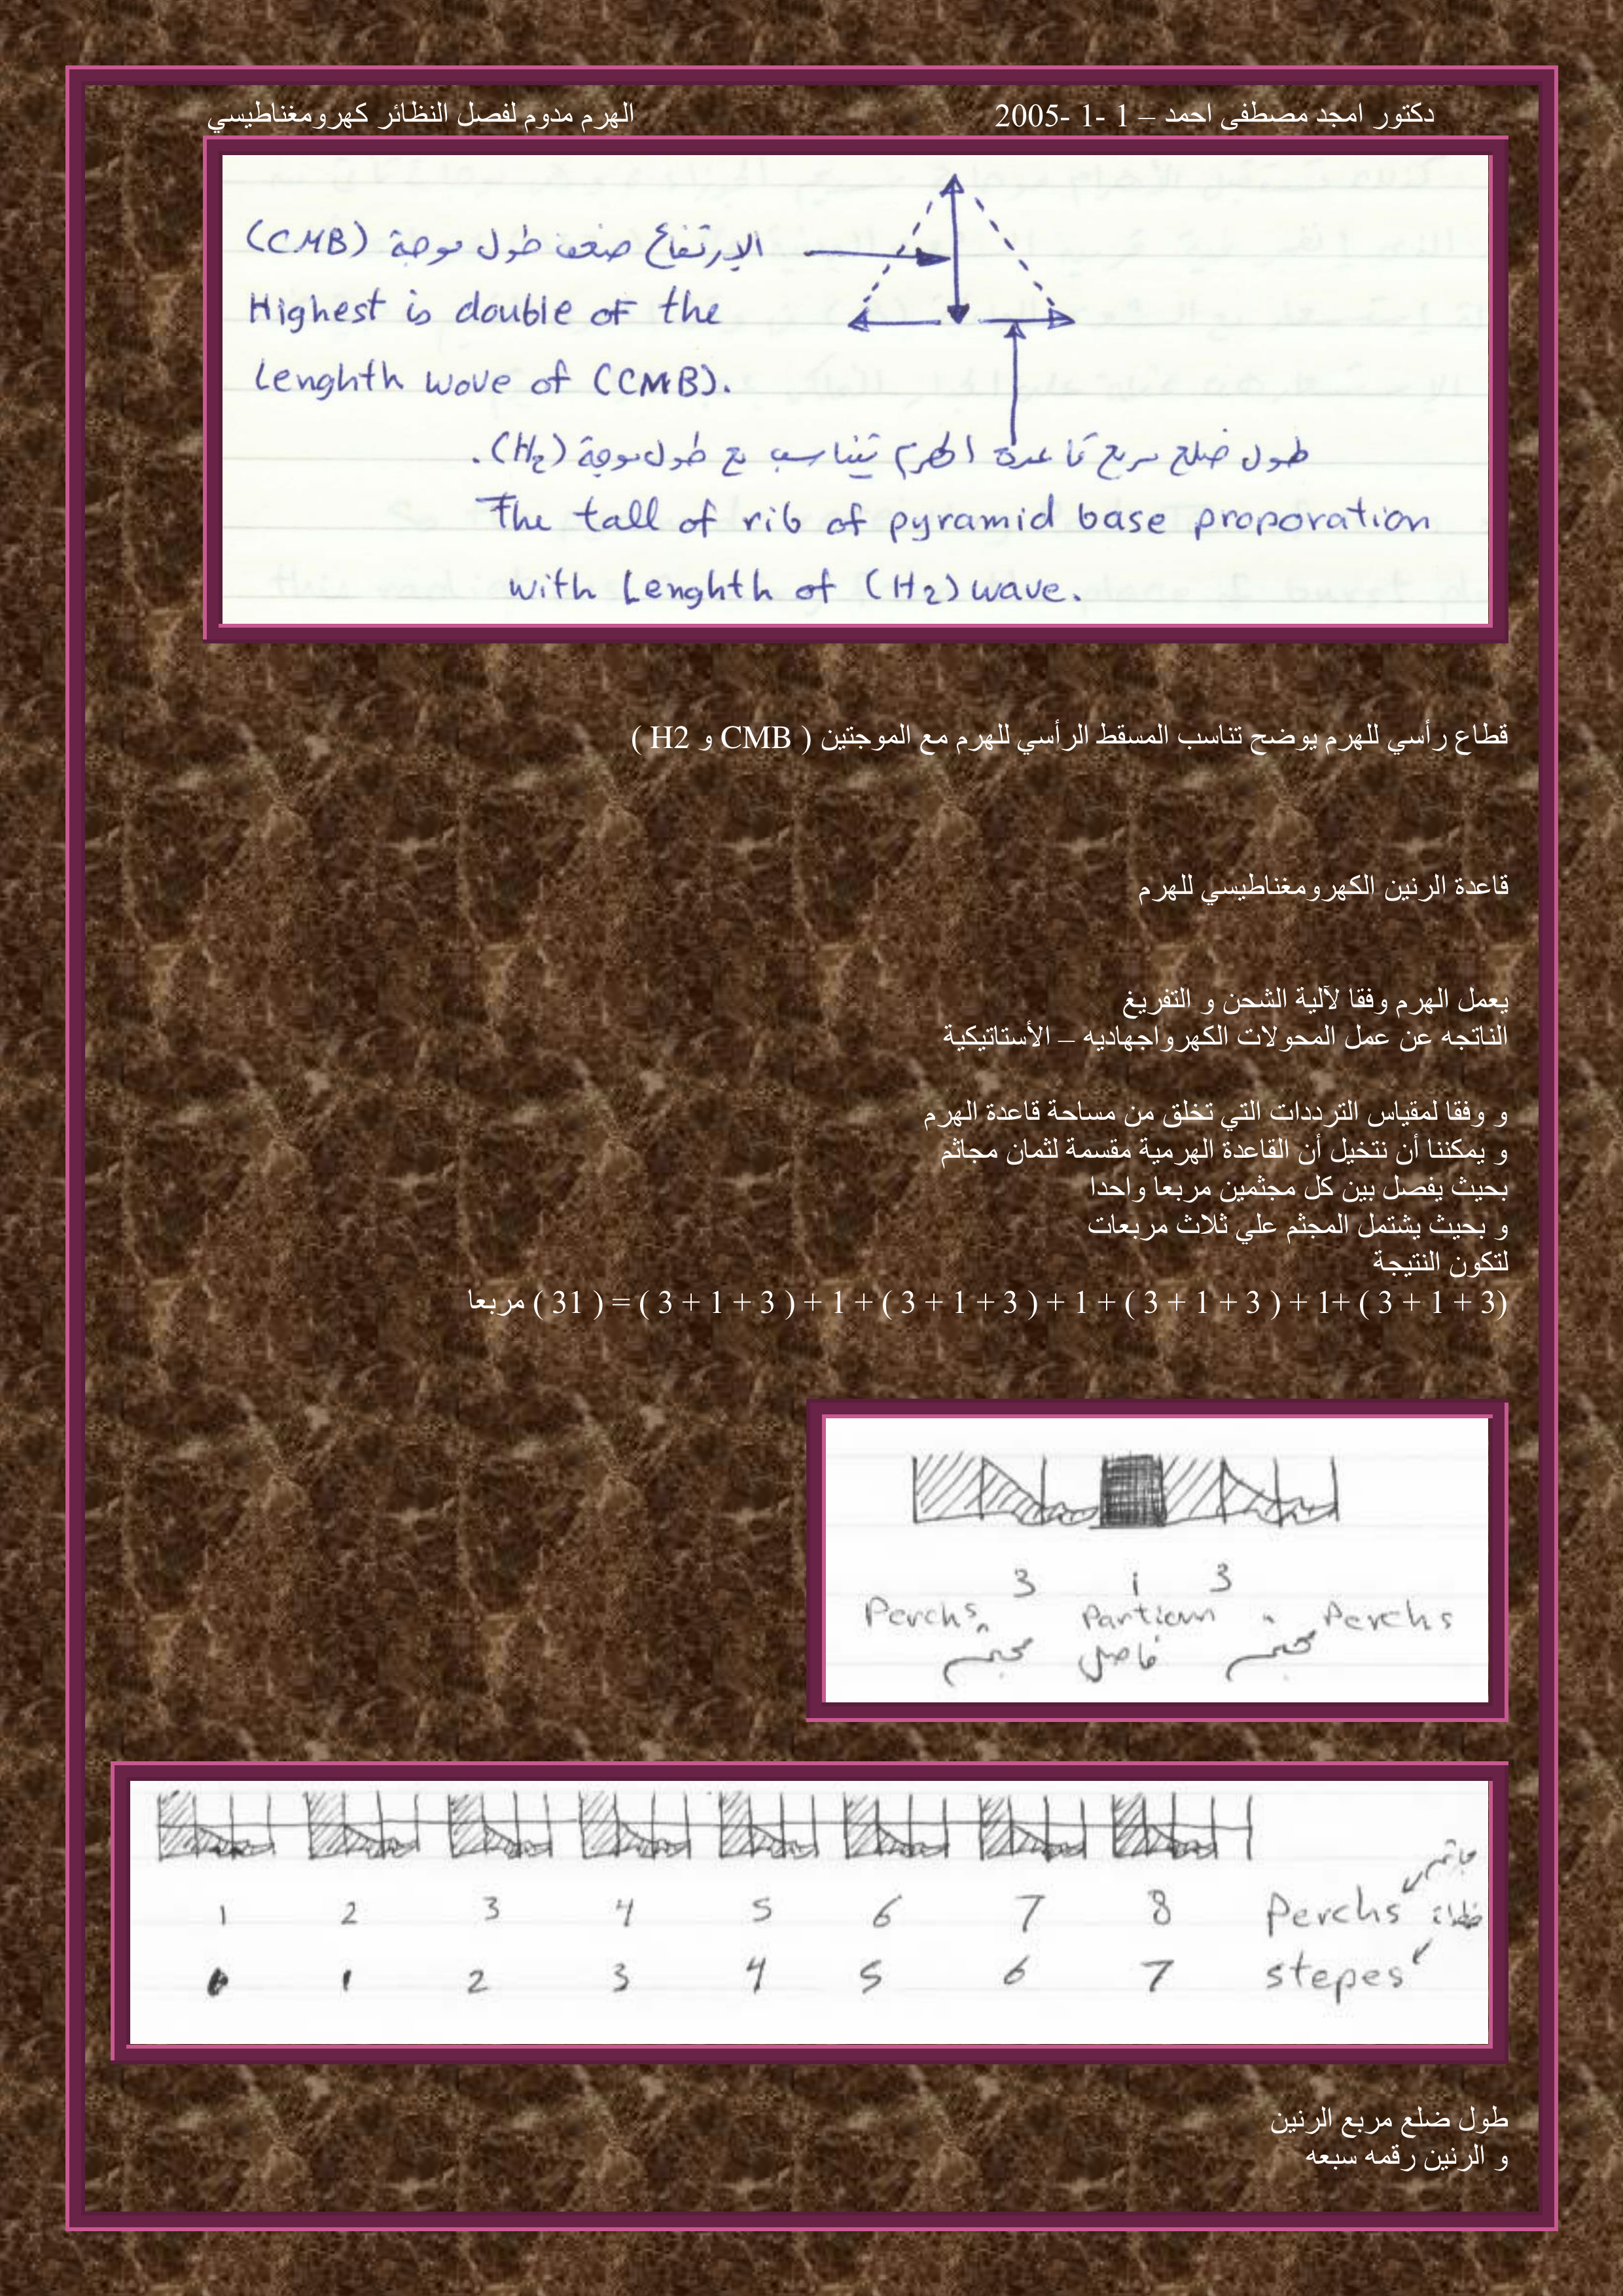 دكتور امجد مصطفى احمد – 1 -1 -2005 الهرم مدوم لفصل النظائر كهرومغناطيسي
الإرتفاع ضعف طول موجة (CMB)
Highest is double of the
Lenghth wove of (CMB).
طول ضلع مربع قاعدة الهرم تتناسب مع طول موجة (H2).
The tall of rib of pyramid base proporation
with Lenghth of (H2) wave.
قطاع رأسي للهرم يوضح تناسب المسقط الرأسي للهرم مع الموجتين ( CMB و H2 )
قاعدة الرنين الكهرومغناطيسي للهرم
يعمل الهرم وفقا لآلية الشحن و التفريغ
الناتجه عن عمل المحولات الكهرواجهاديه – الأستاتيكية
و وفقا لمقياس الترددات التي تخلق من مساحة قاعدة الهرم
و يمكننا أن نتخيل أن القاعدة الهرمية مقسمة لثمان مجاثم
بحيث يفصل بين كل مجثمين مربعا واحدا
و بحيث يشتمل المجثم علي ثلاث مربعات
لتكون النتيجة
(3 + 1 + 3 ) +1+ ( 3 + 1 + 3 ) + 1 + ( 3 + 1 + 3 ) + 1 + ( 3 + 1 + 3 ) = ( 31 ) مربعا
3 1 3
Perchs Partionn Perchs
مجثم فاصل مجثم
1 2 3 4 5 6 7 8 Perchs
0 1 2 3 4 5 6 7 stepes
طول ضلع مربع الرنين
و الرنين رقمه سبعه